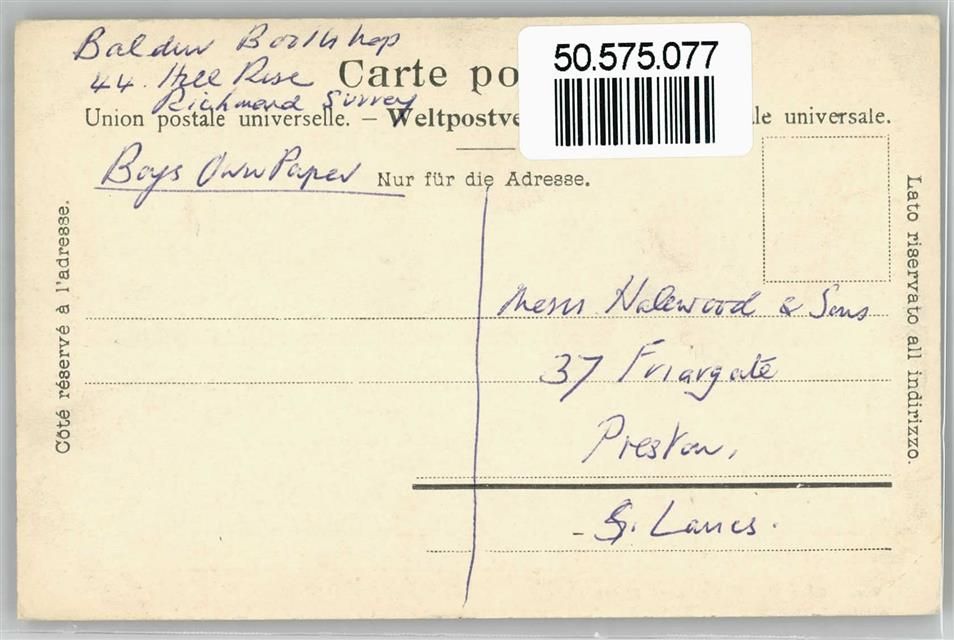 Baldur Bookshop
44. Hill Rise
Richmond Surrey
Carte po
50.575.077
Union postale universelle. – Weltpostve
le universale.
Boys Own Paper
Nur für die Adresse.
Côté réservé à l'adresse.
Lato riservato all indirizzo.
Messrs Halewood & Sons
37 Friargate
Preston,
Lancs.